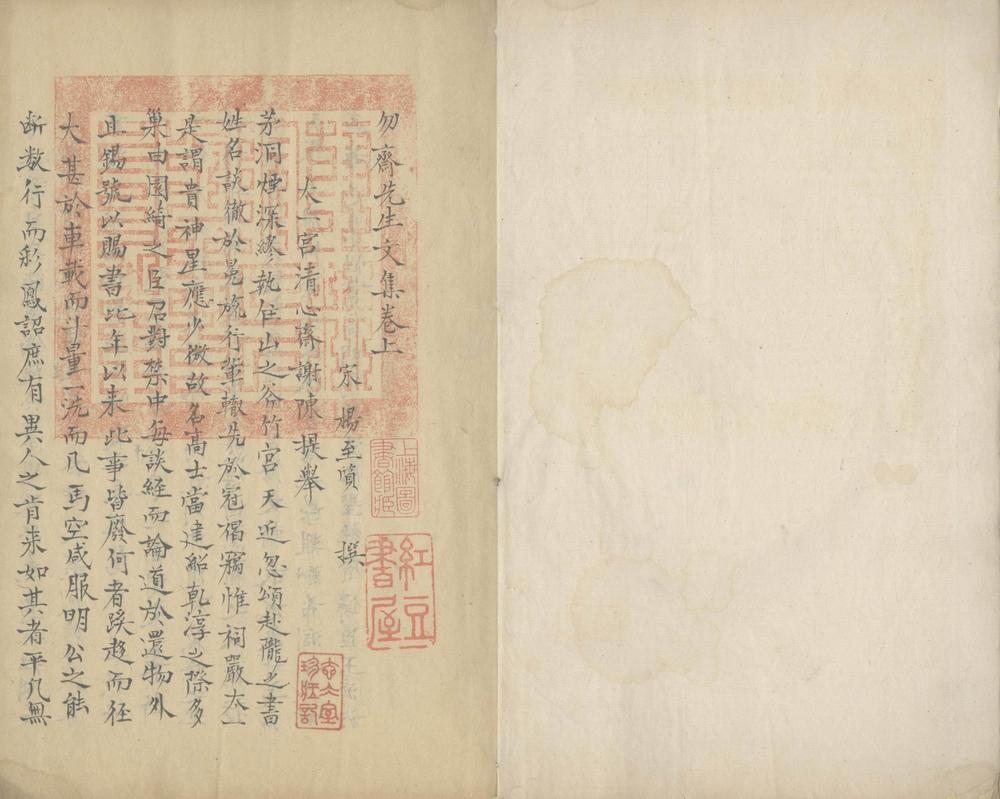 勿齋先生文集卷上
宋 楊至質 撰
太一宮清心齋謝陳提舉
茅洞煙深繆執住山之谷竹宮天近忽頒赴隴之書
姓名談徹於冕旒行輩轍先於冠褐竊惟祠嚴太一
是謂貴神星應少微故名高士當建紹乹淳之際多
巢由園綺之臣召對禁中每談經而論道於還物外
且錫號以賜書比年以來此事皆廢何者蹊趍而徑
大甚於車載而斗量一洗而凡馬空咸服明公之能
断数行而彩鳳詔庶有異人之肯来如某者平凡無
上海圖書館藏
紅豆書屋